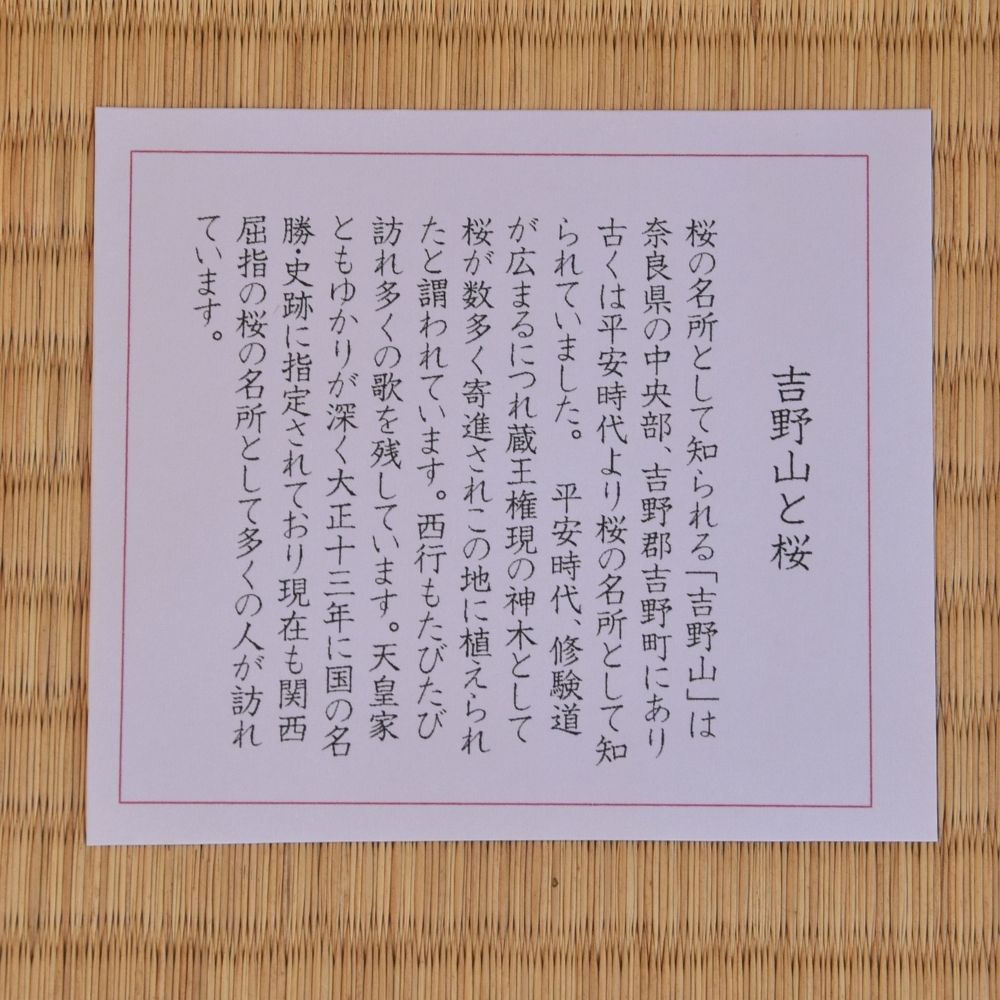 吉野山と桜
桜の名所として知られる「吉野山」は
奈良県の中央部、吉野郡吉野町にあり
古くは平安時代より桜の名所として知
られていました。　平安時代、修験道
が広まるにつれ蔵王権現の神木として
桜が数多く寄進されこの地に植えられ
たと謂われています。西行もたびたび
訪れ多くの歌を残しています。天皇家
ともゆかりが深く大正十三年に国の名
勝・史跡に指定されており現在も関西
屈指の桜の名所として多くの人が訪れ
ています。